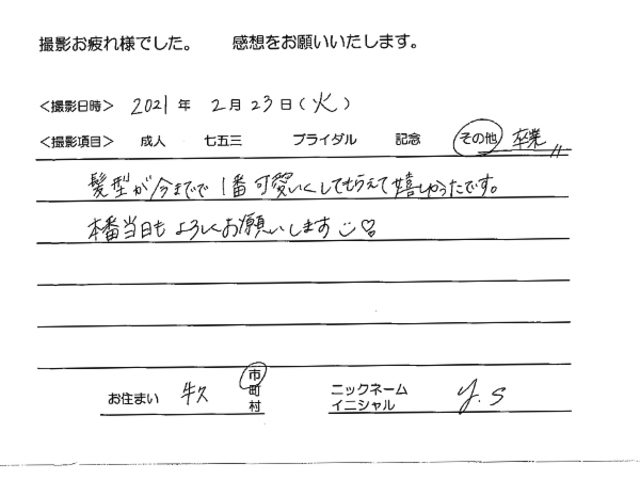 撮影お疲れ様でした。 感想をお願いいたします。
＜撮影日時＞ 2021年 2月23日(火)
＜撮影項目＞ 成人 七五三 ブライダル 記念 その他 卒業
髪型が今までで1番可愛いくしてもらえて嬉しかったです。
本番当日もよろしくお願いします♡
お住まい 牛久 市町村 ニックネーム イニシャル y.s